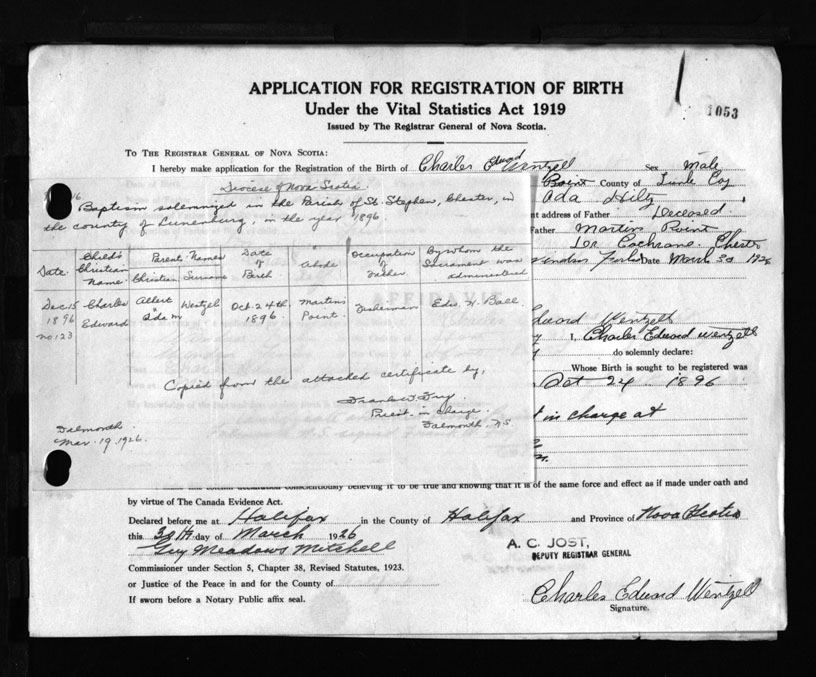 APPLICATION FOR REGISTRATION OF BIRTH
Under the Vital Statistics Act 1919
Issued by The Registrar General of Nova Scotia.
1053
TO THE REGISTRAR GENERAL OF NOVA SCOTIA:
I hereby make application for the Registration of the Birth of Charles Edward Wentzell Sex Male
Point County of Lunb Coy
Ada Hiltz
nt address of Father Deceased
Father Martins Point
Dr Cochrane Chester
Date March 30 1926
Diocese of Nova Scotia.
Baptism solemnized in the Parish of St. Stephen, Chester, in
the county of Lunenburg, in the year 1896.
Date. Child's Christian Name. Parents Names Christian Surname Date of Birth Abode Occupation of Father By whom the Sacrament was administered
Dec 15 1896 no 123 Charles Edward Albert Wentzel Oct. 24th 1896. Martins Point. Fisherman Edw. H. Ball.
Copied from the attached certificate by,
Priest in charge.
Falmouth N.S.
Mar. 19, 1926.
Edward Wentzell
I, Charles Edward Wentzell
do solemnly declare:
Whose Birth is sought to be registered was
Oct 24 1896
t in charge at
conscientiously believing it to be true and knowing that it is of the same force and effect as if made under oath and
by virtue of The Canada Evidence Act.
Declared before me at Halifax in the County of Halifax and Province of Nova Scotia
this 30th day of March 1926
Guy Meadows Mitchell
A. C. JOST,
DEPUTY REGISTRAR GENERAL
Commissioner under Section 5, Chapter 38, Revised Statutes, 1923.
or Justice of the Peace in and for the County of
If sworn before a Notary Public affix seal.
Charles Edward Wentzell
Signature.